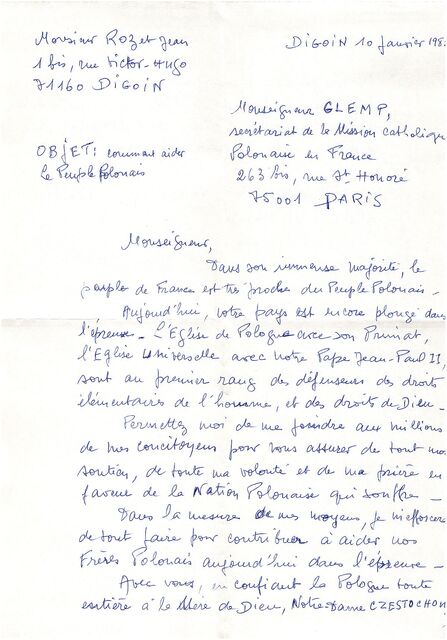 Monsieur ROZET Jean
1 bis, rue Victor-Hugo
71160 DIGOIN
DIGOIN 10 Janvier 198
Monseigneur GLEMP,
secrétariat de la Mission Catholique
Polonaise en France
263 bis, rue St Honoré
75001 PARIS
OBJET: comment aider
le Peuple Polonais
Monseigneur,
Dans son immense majorité, le
peuple de France est très proche du Peuple Polonais -
Aujourd'hui, votre pays est encore plongé dans
l'épreuve - L'Eglise de Pologne avec son Primat,
l'Eglise Universelle avec notre Pape Jean-Paul II,
sont au premier rang des défenseurs des droits
élémentaires de l'homme, et des droits de Dieu -
Permettez moi de me joindre aux millions
de mes concitoyens pour vous assurer de tout mon
soutien, de toute ma volonté et de ma prière en
faveur de la Nation Polonaise qui souffre -
Dans la mesure de mes moyens, je m'efforcerai
de tout faire pour contribuer à aider nos
Frères Polonais aujourd'hui dans l'épreuve -
Avec vous, en confiant la Pologne toute
entière à la Mère de Dieu, Notre-Dame CZESTOCHOW